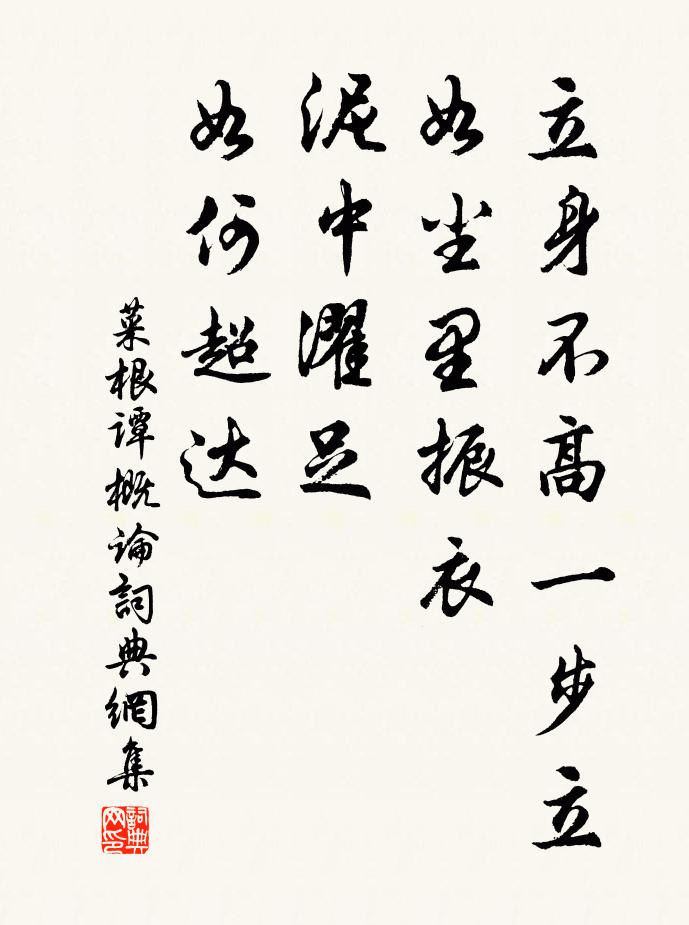 立身不高一步立
如尘里振衣
泥中濯足
如何超达
菜根谭概论詞典網集
詞典网印